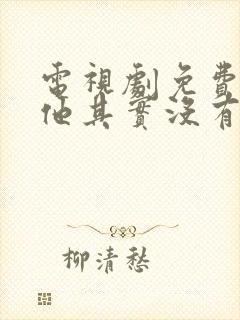 電視劇免費
他其實沒有
柳清愁